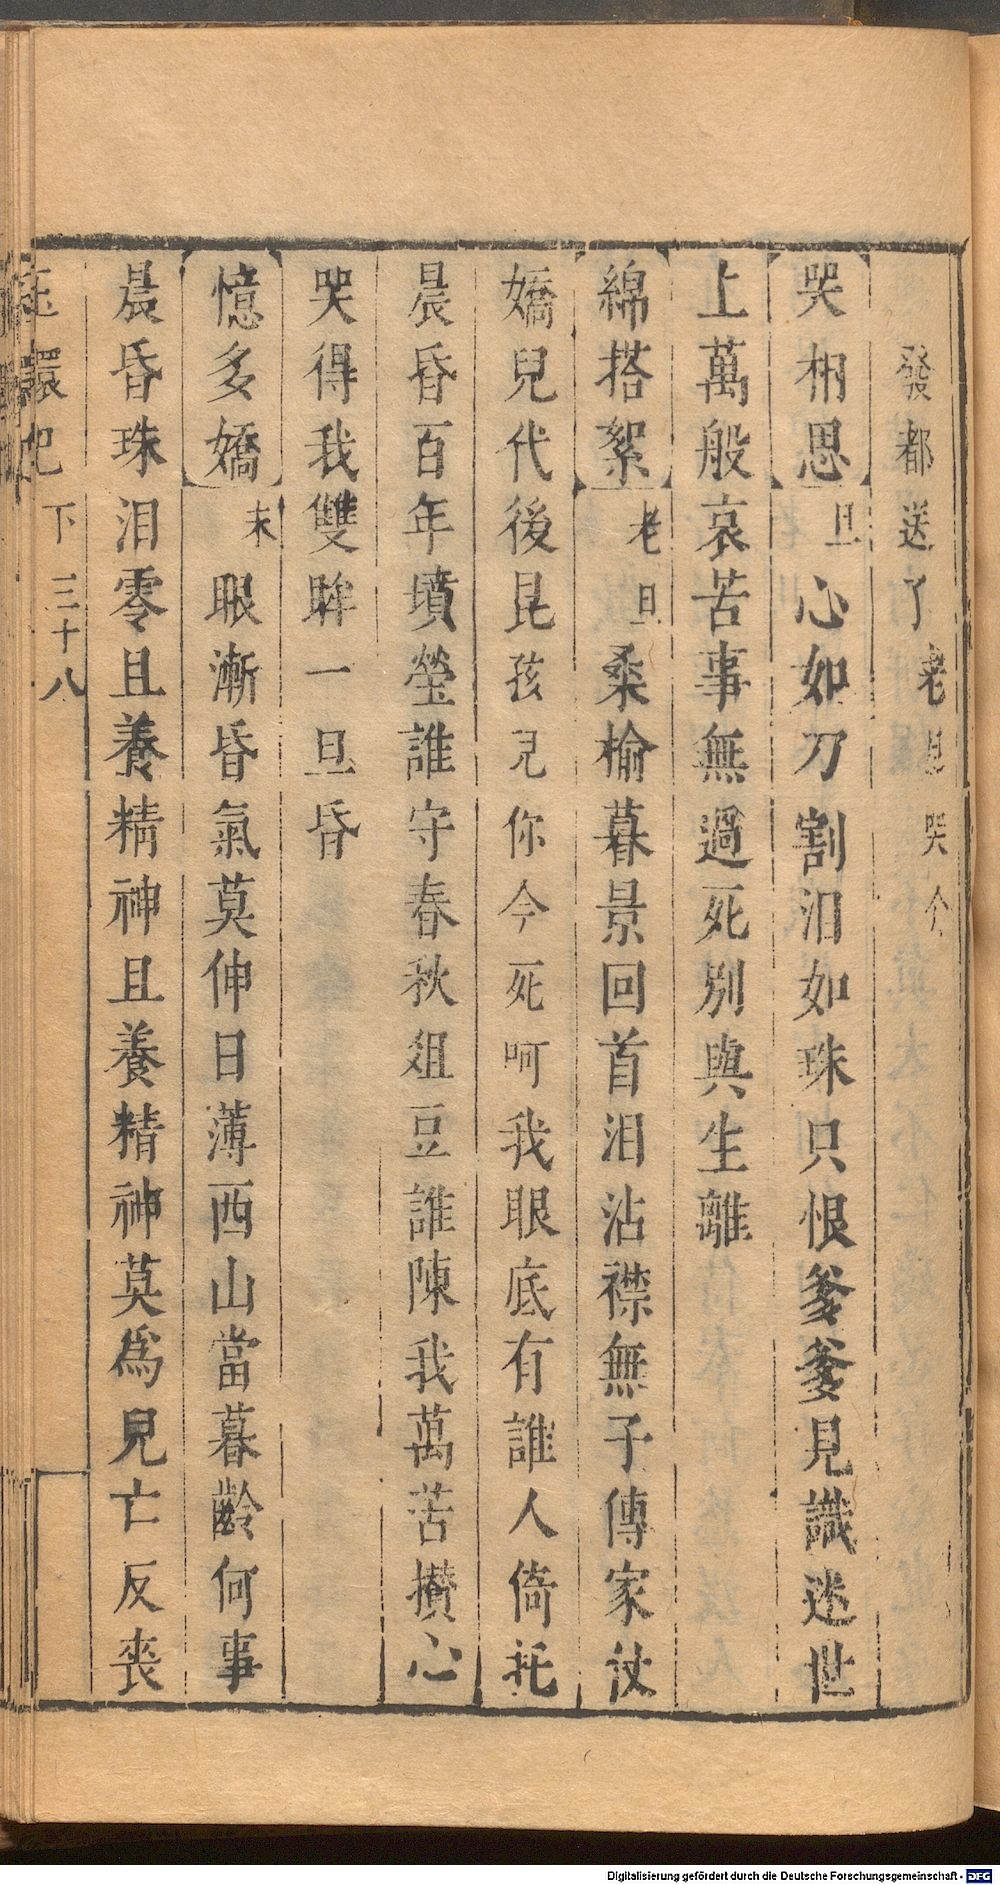 發都送了老旦哭介
哭相思旦心如刀割泪如珠只恨爹爹見識迷世
上萬般哀苦事無過死別與生離
綿搭絮老旦桑榆暮景回首泪沾襟無子傳家仗
嬌兒代後昆孩兒你今死呵我眼底有誰人倚托
晨昏百年墳瑩誰守春秋俎豆誰陳我萬苦攢心
哭得我雙眸一旦昏
憶多嬌末眼漸昏氣莫伸日薄西山當暮齡何事
晨昏珠泪零且養精神且養精神莫爲兒亡反喪
玉環記 下 三十八
Digitalisierung gefördert durch die Deutsche Forschungsgemeinschaft - DFG